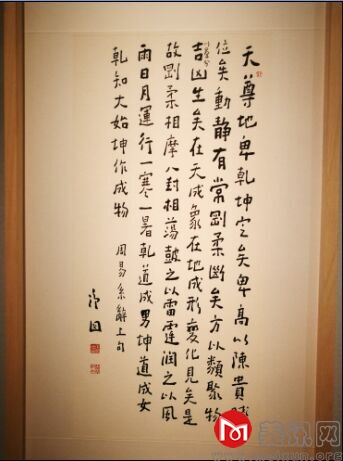 天尊地卑乾坤定矣卑高以陳貴賤
位矣動靜有常剛柔斷矣方以類聚物
吉凶生矣在天成象在地成形變化見矣是
故剛柔相摩八卦相蕩鼓之以雷霆潤之以風
雨日月運行一寒一暑乾道成男坤道成女
乾知大始坤作成物 周易系辭上句